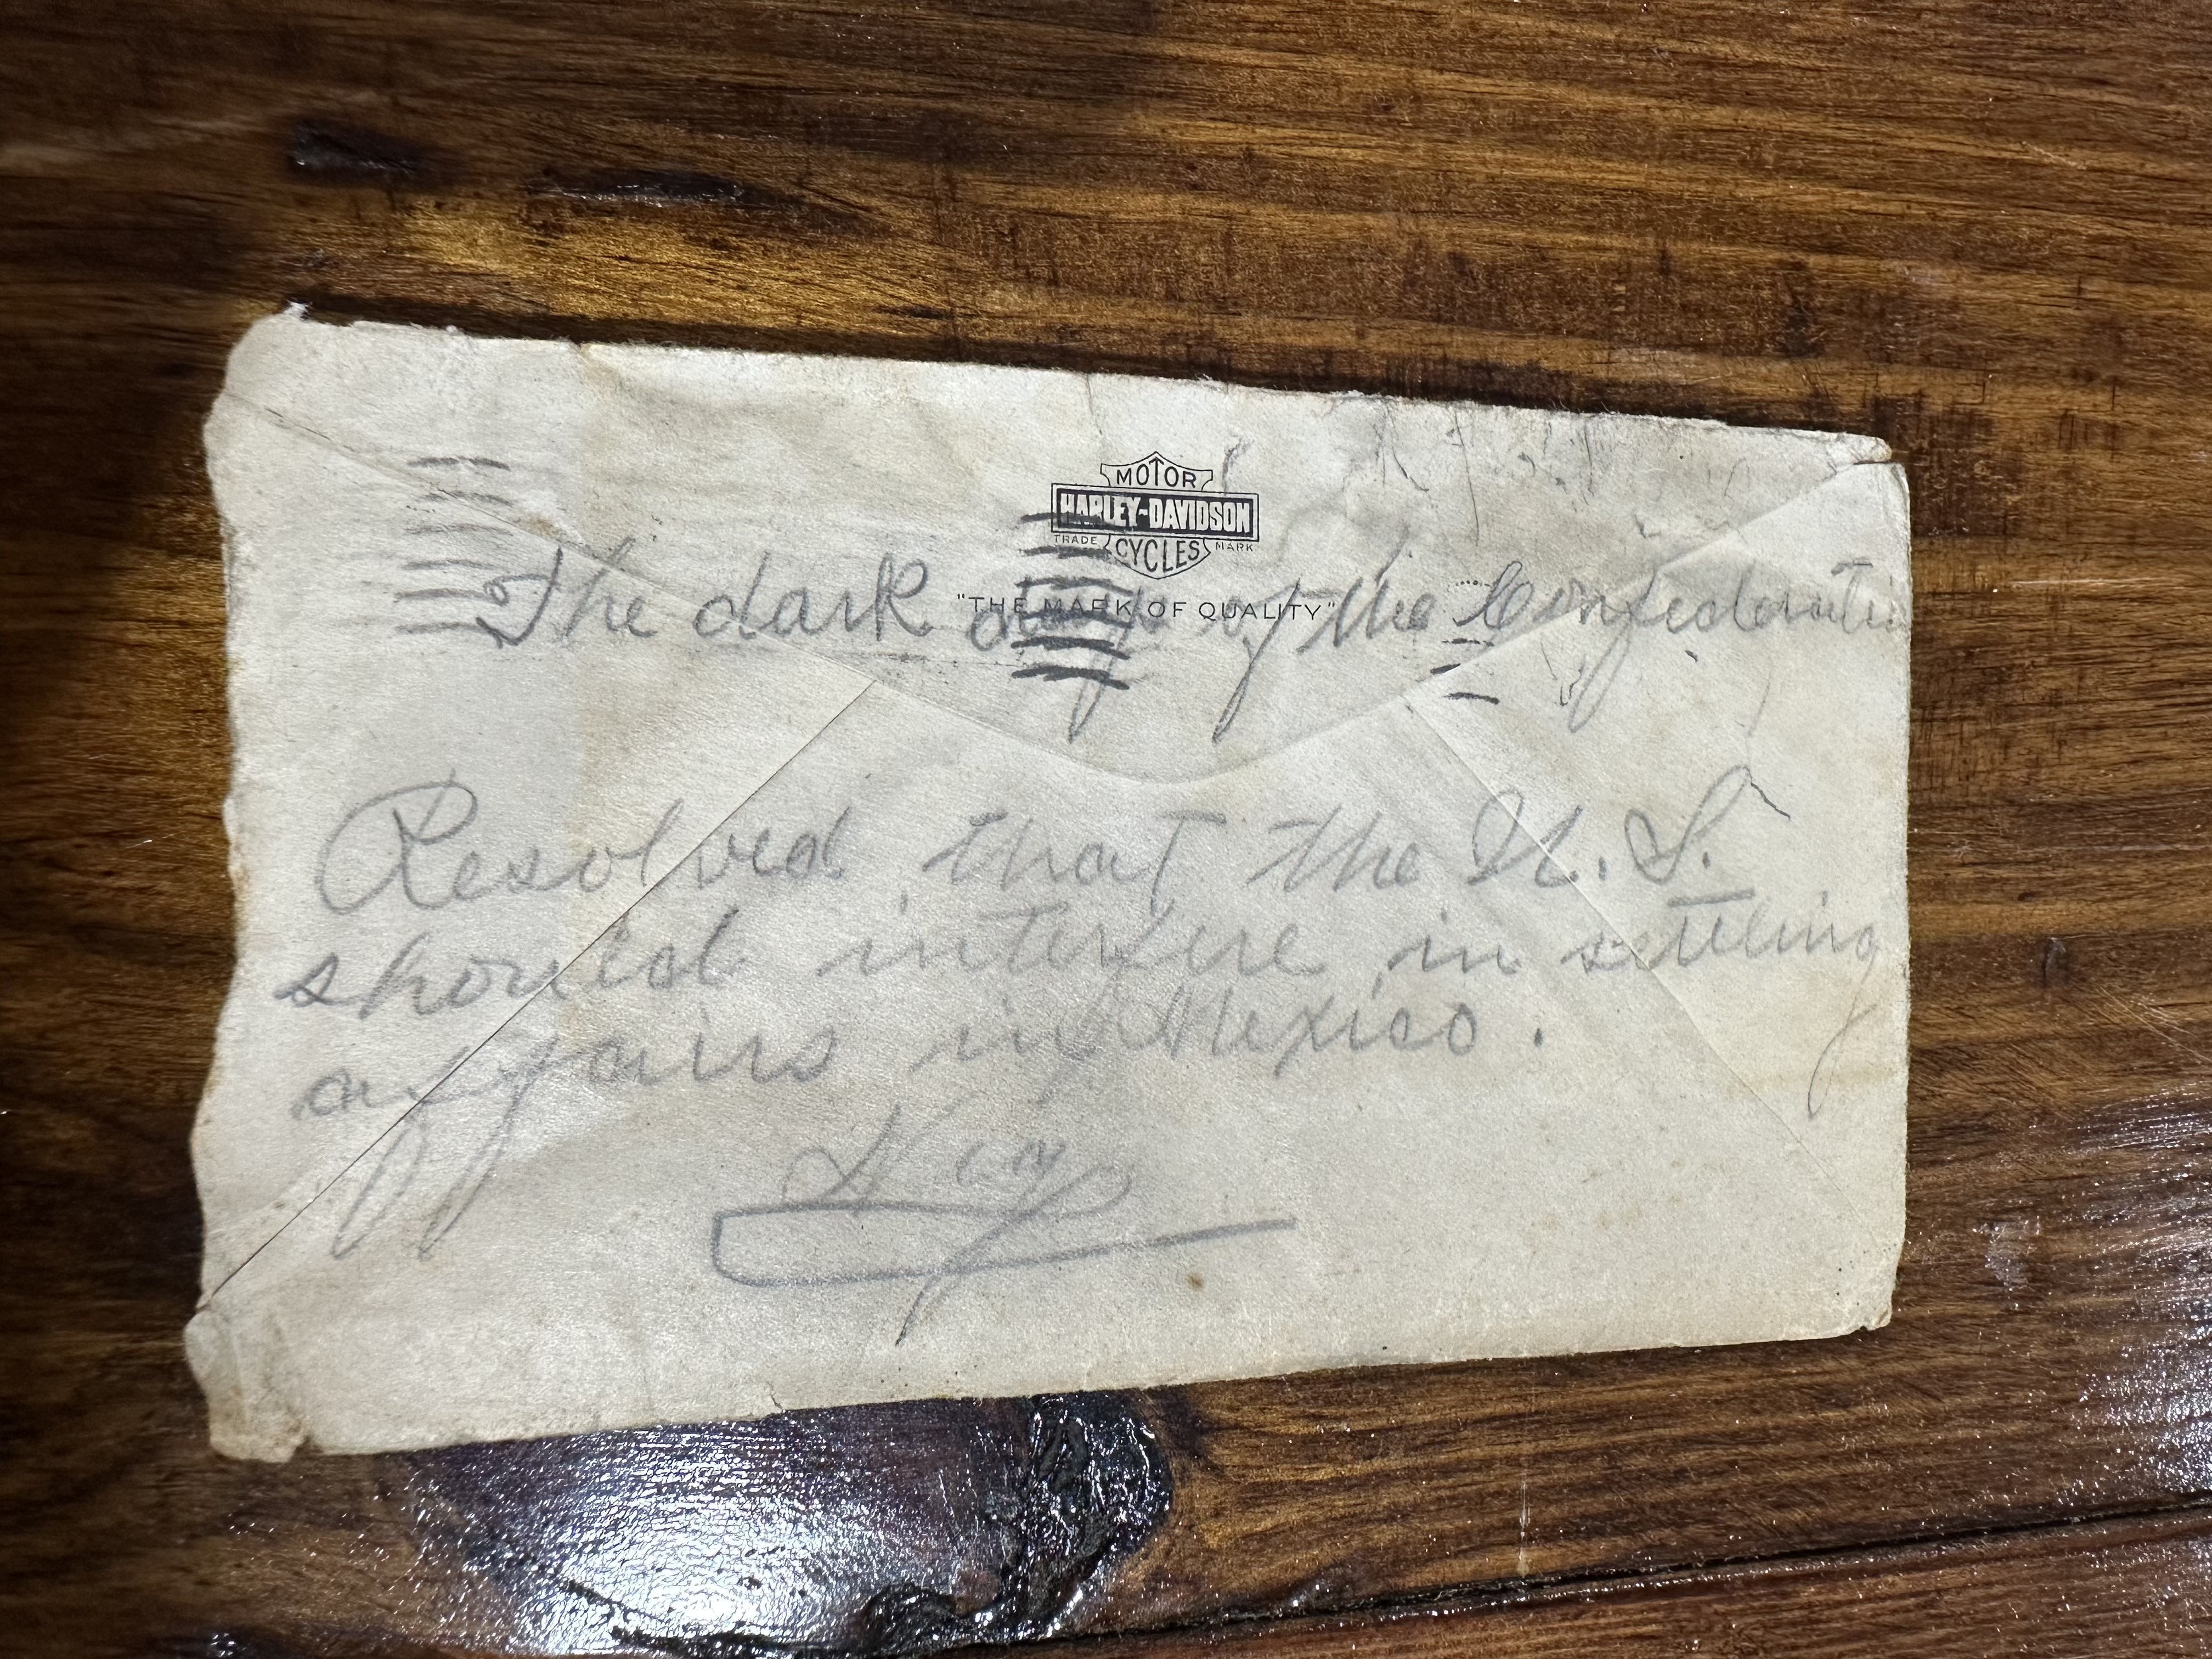 MOTOR
HARLEY-DAVIDSON
TRADE MARK
CYCLES
"THE MARK OF QUALITY"
The dark days of the Confederati
Resolved that the U. S.
should interfere in settling
affairs in Mexico.